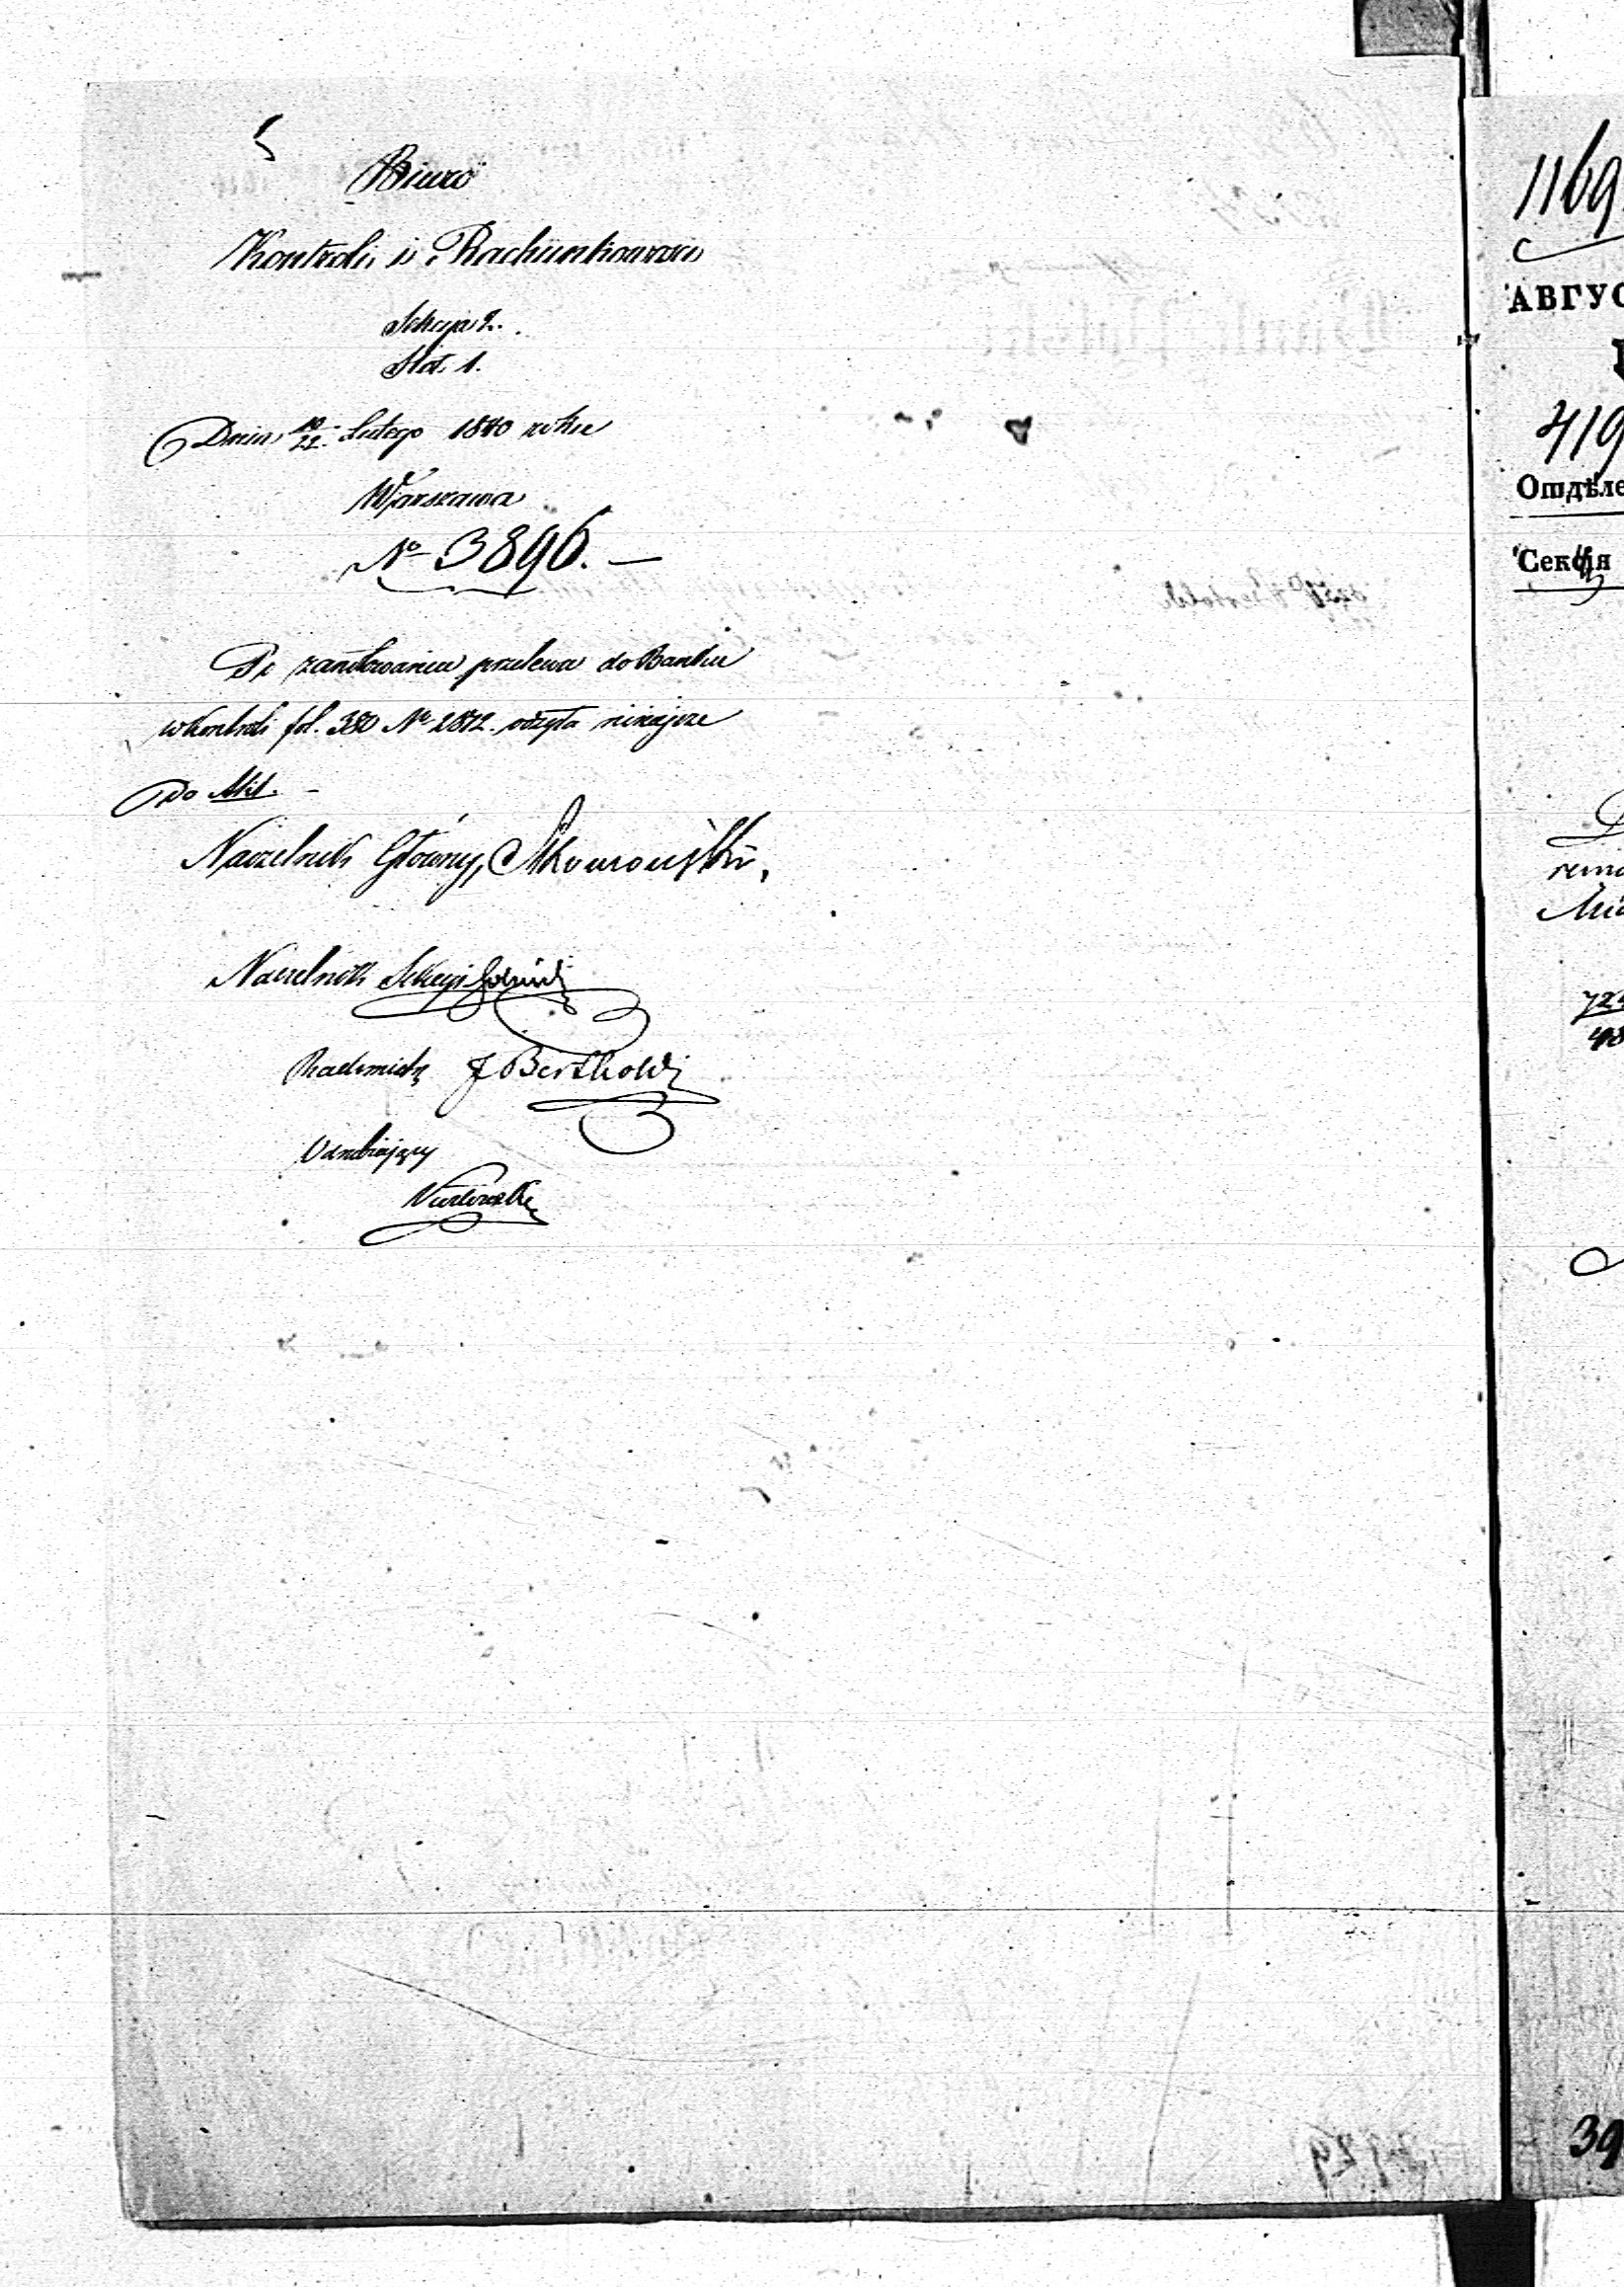 Biuro
Kontroli i Rachunkowości
Sekcja 2.
Stół 1.
Dnia 10/22 Lutego 1840 roku
Warszawa
No 3896. —
Po zanotowaniu przelewu do Banku
w Kontroli fol. 380 No 2812. odzyła niniejsze
Do Akt. –
Naczelnik Główny,
Naczelnik Sekcyi
Rachmistrz J Berthold
Odrabiający
1169
АВГУС
419
Отдѣле
Секція
39